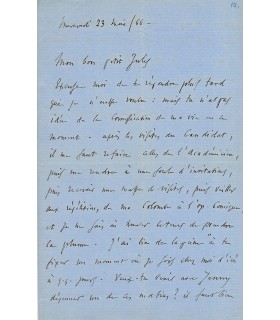 Mercredi 23 Mai /66 —
Mon bon petit Jules
Excuse moi de te répondre plus tard
que je n'eusse voulu : mais tu n'as pas
idée de la complication de ma vie en ce
moment — après les visites du Candidat,
il me faut refaire celles de l'académicien,
puis me rendre à une foule d'invitations,
puis recevoir une masse de visites, puis
aux répétitions de ma Colombe à l'op. Comique
et je ne sais à quelle heure de prendre
la plume. J'ai bien de la peine à te
fixer un moment où je sois chez moi d'ici
à jours. Veux-tu venir avec
déjeuner un de ces matins? il faut